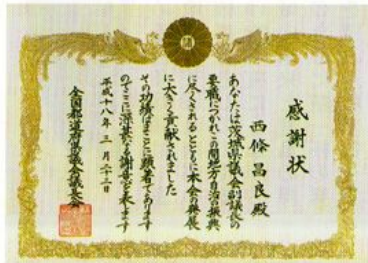 感謝状
西條昌良殿
あなたは茨城県議会副議長の
要職につかれこの間地方自治の振興
に尽くされるとともに本会の発展
に大きく貢献されました
その功績はまことに顕著であります
のでここに深甚なる謝意を表します
平成十八年三月二十二日
全国都道府県議会議長会